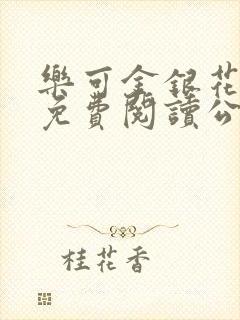 樂可金銀花
免費閱讀公
桂花香